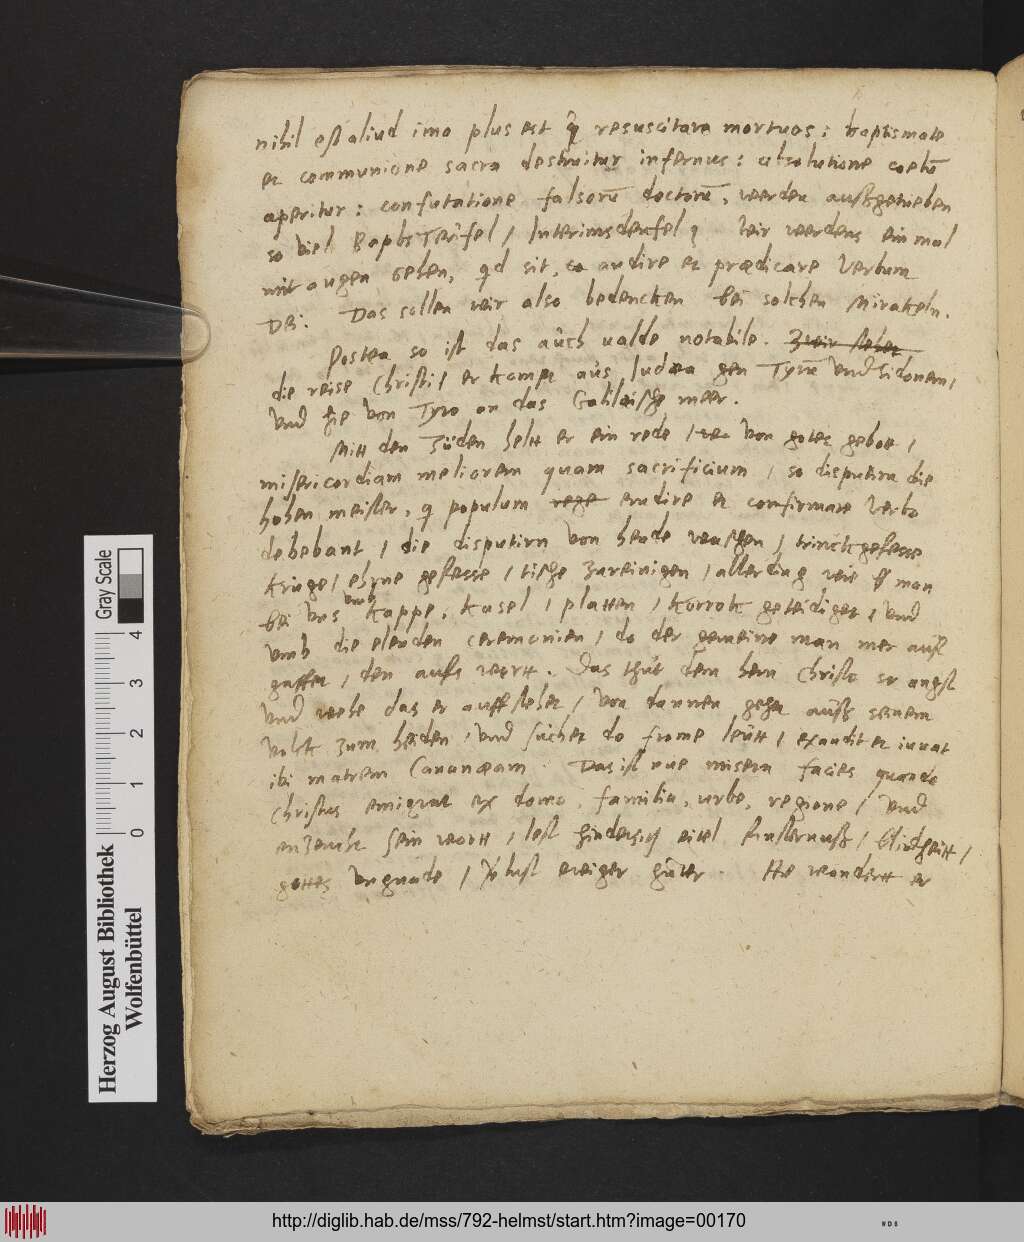 nihil est aliud imo plus est q̃ resuscitare mortuos: baptismate
et communione sacra destruitur infernus: absolutione coelũ
aperitur: confutatione falsorũ doctorũ, werden außgetrieben
so viel BapbsTeüfel / Interimsdeufel Wir werdens ein mol
mit augen sehen, qd sit, audire et prædicare Verbum
DEI. Das sollen wir also bedencken bei solchen Mirakeln.
Postea so ist das aüch ualde notabile. Zwir
die reise Christi / er kompt aüs Judæa gen Tyrũ und Sidonem,
Und hie von Tyro an das Galileische meer.
Mitt den Jüden helt er ein rede / von gotes gebott /
misericordiam meliorem quam sacrificium / so disputirn die
hohen meister, q populum rege erudire et confirmare verbo
debebant / die disputirn von hende waschen / trinckgefesse
kruge / ehrne gefesse / tische zureinigen / allerding wie man
bei Uns umb Kappe, Kasel / platten / korrok geteidiget / und
umb die elenden ceremonien / do der gemeine man mer auff
gaffet / den aufs wortt. Das thüt dem hern Christo so angst
und wehe das er auffstehet / von dannen gehet aüß seinem
volck zum heiden / und suchet do frome leütt / exaudit et iuuat
ibi matrem Cananæam. Das ist nue misera facies quando
Christus emigrat ex domo, familia, urbe, regione / und
enzeucht sein wortt / lest hindersich eitel finsternuß / blindheitt /
gottes ungnade / v̈lust ewiger güter. Hie wandertt er
Herzog August Bibliothek
Wolfenbüttel
Gray Scale
0 1 2 3 4
http://diglib.hab.de/mss/792-helmst/start.htm?image=00170